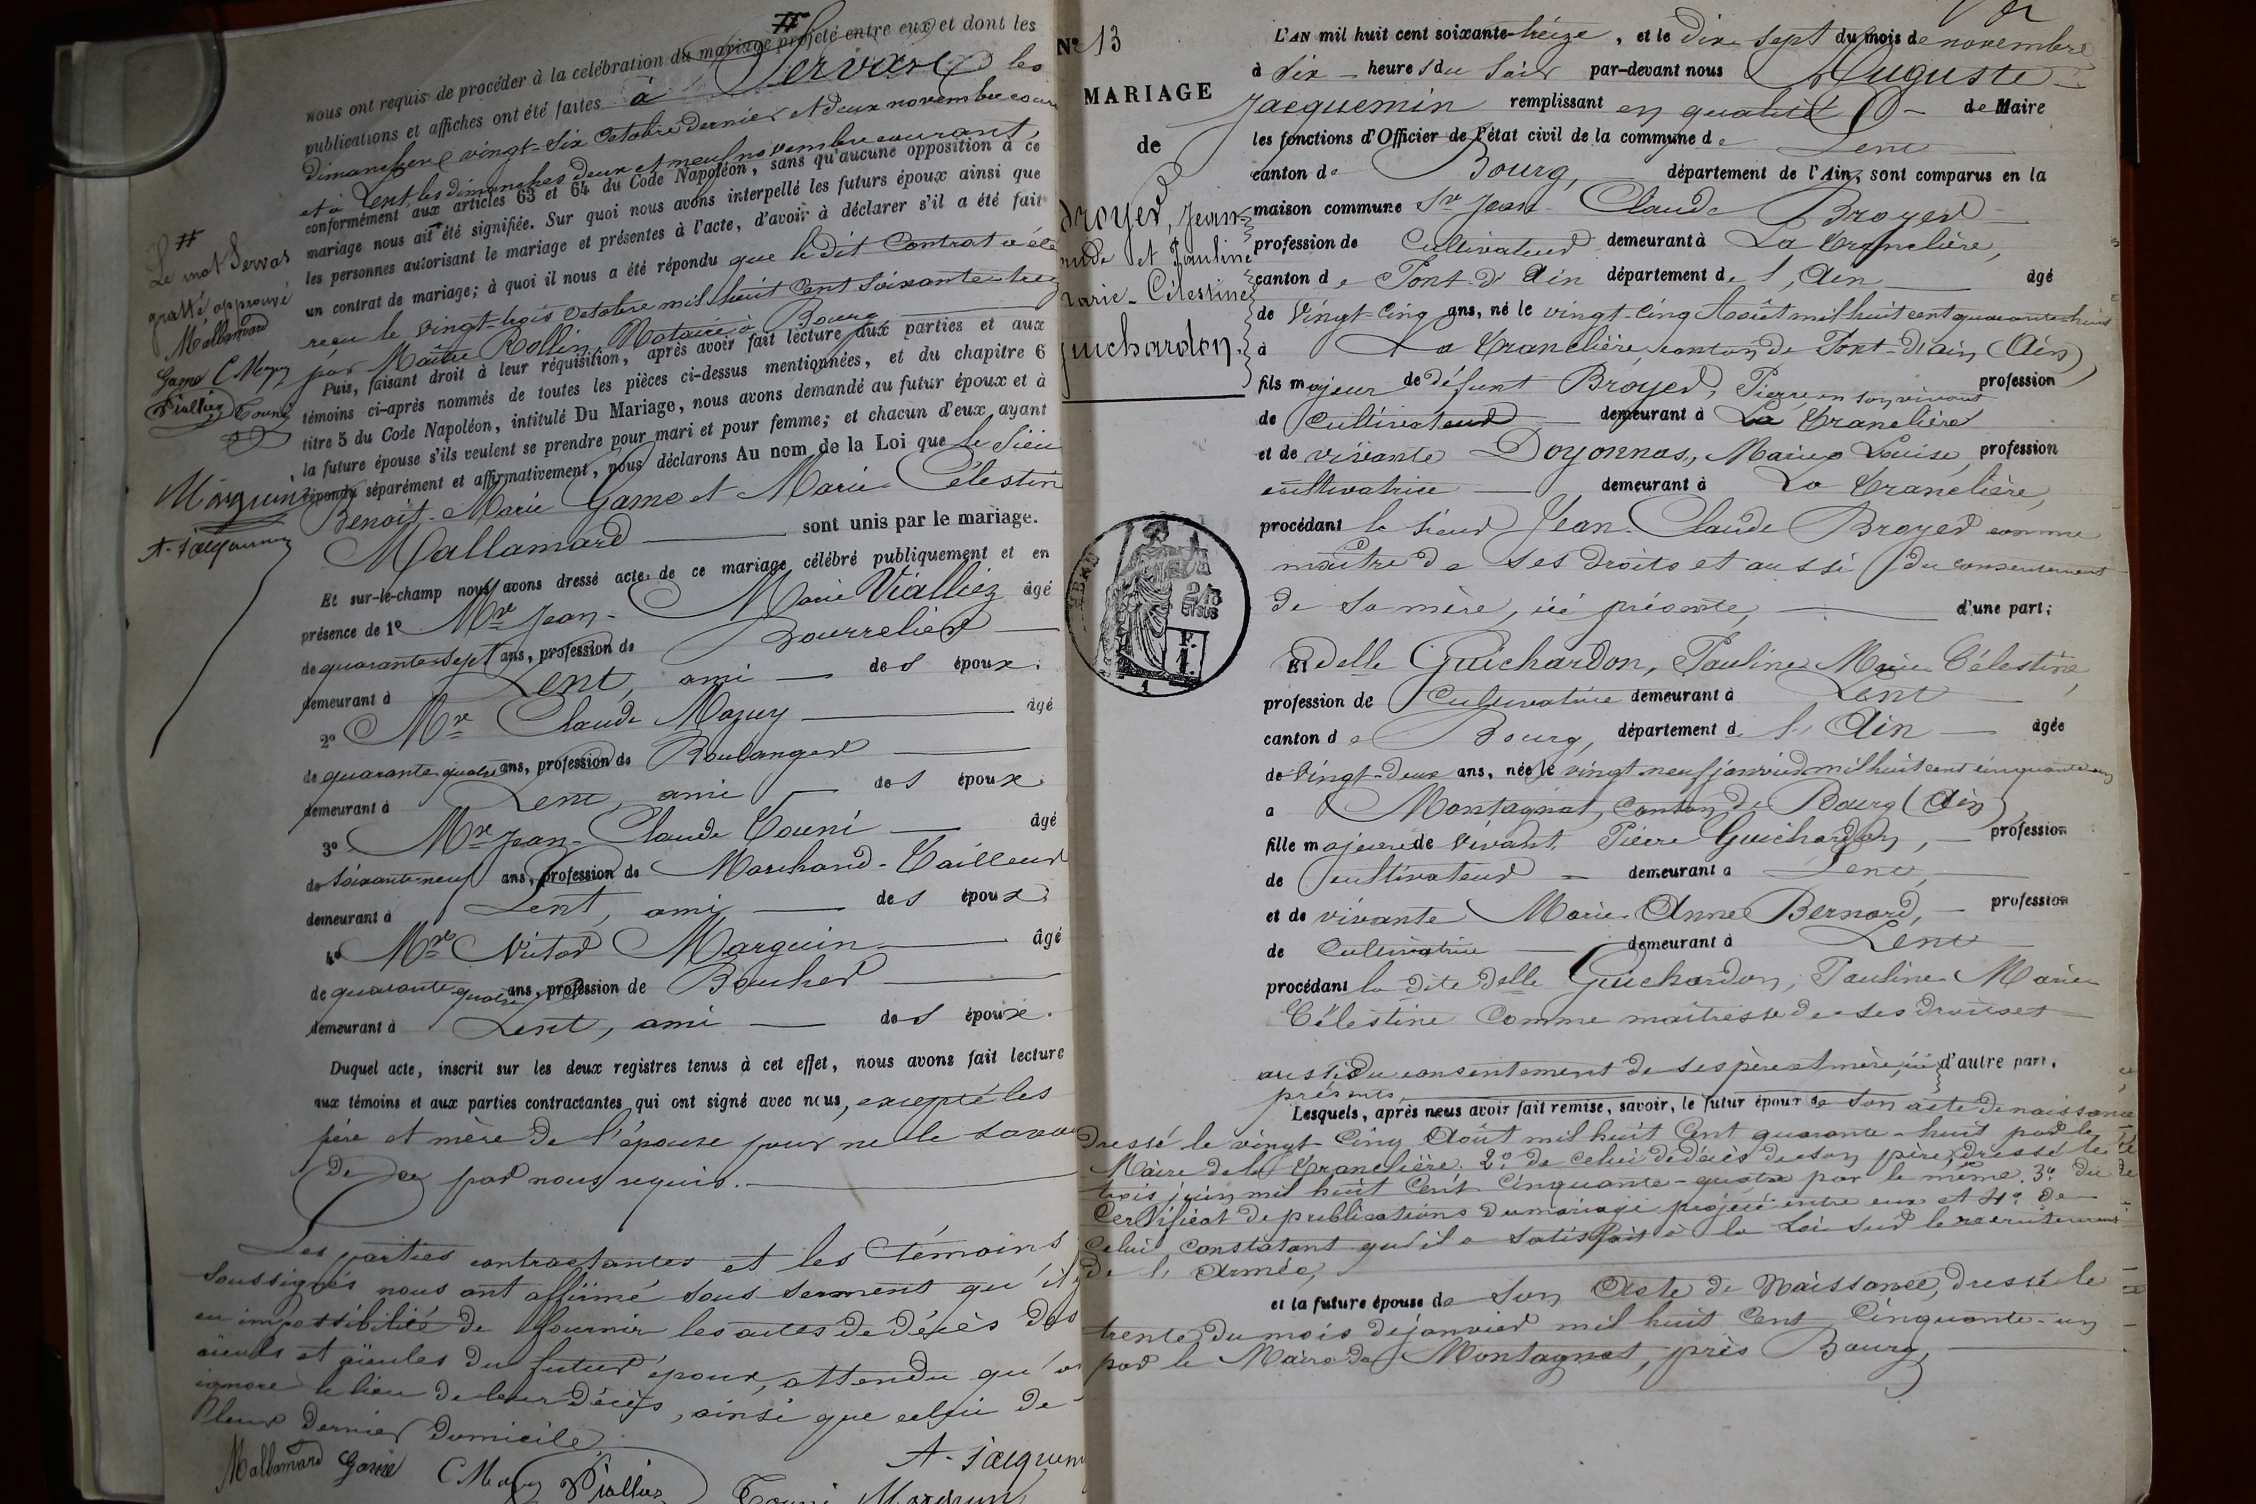 nous ont requis de procéder à la célébration du mariage projeté entre eux et dont les
publications et affiches ont été faites à Servas les
dimanches vingt-six octobre dernier et deux novembre cour
et à Lent, les dimanches deux et neuf novembre courant,
conformément aux articles 63 et 64 du Code Napoléon, sans qu'aucune opposition à ce
mariage nous ait été signifiée. Sur quoi nous avons interpellé les futurs époux ainsi que
les personnes autorisant le mariage et présentes à l'acte, d'avoir à déclarer s'il a été fait
un contrat de mariage; à quoi il nous a été répondu que le dit Contrat a été
reçu le vingt-trois octobre mil huit cent soixante-treiz
par Maître Rollin, Notaire à Bourg
Puis, faisant droit à leur réquisition, après avoir fait lecture aux parties et aux
témoins ci-après nommés de toutes les pièces ci-dessus mentionnées, et du chapitre 6
titre 5 du Code Napoléon, intitulé Du Mariage, nous avons demandé au futur époux et à
la future épouse s'ils veulent se prendre pour mari et pour femme; et chacun d'eux ayant
répondu séparément et affirmativement, nous déclarons Au nom de la Loi que le Sieu
Benoit-Marie Game et Marie Célestin
Mallamard sont unis par le mariage.
Et sur-le-champ nous avons dressé acte de ce mariage célébré publiquement et en
présence de 1º Mr Jean-Marie Vialliez âgé
de quarante-sept ans, profession de Bourrelier
demeurant à Lent, ami des époux.
2º Mr Claude Mazuy âgé
de quarante-quatre ans, profession de Boulanger
demeurant à Lent, ami des époux
3º Mr Jean-Claude Touni âgé
de soixante-neuf ans, profession de Marchand-Tailleur
demeurant à Lent, ami des époux
4º Mr Victor Marguin âgé
de quarante-quatre ans, profession de Boucher
demeurant à Lent, ami des époux.
Duquel acte, inscrit sur les deux registres tenus à cet effet, nous avons fait lecture
aux témoins et aux parties contractantes qui ont signé avec nous, excepté les
père et mère de l'épouse pour ne le savoi
de ce par nous requis.
Les parties contractantes et les témoins
soussignés nous ont affirmé sous serment qu'il
en impossibilité de fournir les actes de décès des
aïeuls et aïeules du futur époux, attendu qu'o
ignore le lieu de leur décès, ainsi que celui de
leur dernier domicile.
A. Jacquem
Mallamard Game C Mazuy Vialliez Touni Marguin
#
Le mot Servas
gratté, approuvé
Mallamard
Game C Mazuy
Vialliez Touni
Marguin
A. Jacquemin
Nº 13
MARIAGE
de
Broyer, Jean-
aude et Pauline
Marie-Célestine
Guichardon.
2/10
EN SUS
L'AN mil huit cent soixante-treize, et le dix sept du mois de novembre
à six heures du soir par-devant nous Auguste
Jacquemin remplissant en qualité de Maire
les fonctions d'Officier de l'état civil de la commune de Lent
canton de Bourg, département de l'Ain, sont comparus en la
maison commune Sr Jean-Claude Broyer
profession de Cultivateur demeurant à La Tranclière,
canton de Pont-d'Ain département de l'Ain âgé
de Vingt-cinq ans, né le vingt-cinq Août mil huit cent quarante-huit
à La Tranclière, canton de Pont-d'Ain (Ain)
fils majeur de défunt Broyer, Pierre, en son vivant profession
de Cultivateur demeurant à La Tranclière
et de vivante Doyonnas, Marie Louise, profession
cultivatrice demeurant à La Tranclière,
procédant le sieur Jean-Claude Broyer comme
maître de ses droits et aussi du consentement
de sa mère, ici présente, d'une part;
Et delle Guichardon, Pauline Marie Célestine,
profession de Cultivatrice demeurant à Lent
canton de Bourg, département de l'Ain âgée
de Vingt-deux ans, née le vingt neuf janvier mil huit cent cinquante un
à Montagnat, canton de Bourg (Ain)
fille majeure de vivant Pierre Guichardon, profession
de Cultivateur demeurant à Lent,
et de vivante Marie-Anne Bernard, profession
de Cultivatrice demeurant à Lent
procédant la dite delle Guichardon, Pauline Marie
Célestine comme maîtresse de ses droits et
aussi du consentement de ses père et mère, ici d'autre part.
présents,
Lesquels, après nous avoir fait remise, savoir, le futur époux de son acte de naissance
dressé le vingt-cinq Août mil huit cent quarante-huit par le
Maire de la Tranclière. 2º de celui de décès de son père, dressé le
trois juin mil huit cent cinquante-quatre par le même. 3º du
Certificat de publications du mariage projeté entre eux et 4º de
celui constatant qu'il a satisfait à la Loi sur le recrutement
de l'Armée,
et la future épouse de son Acte de Naissance, dressé le
trente du mois de janvier mil huit cent cinquante-un
par le Maire de Montagnat, près Bourg,